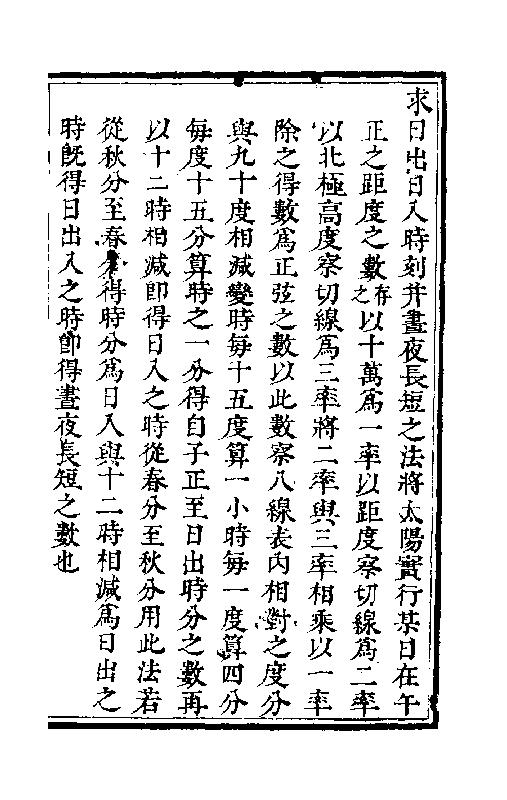 求日出日入時刻幷晝夜長短之法將太陽實行某日在午
正之距度之數存之以十萬爲一率以距度察切線爲二率
以北極高度察切線爲三率將二率與三率相乘以一率
除之得數爲正弦之數以此數察八線表內相對之度分
與九十度相減變時每十五度算一小時每一度算四分
每度十五分算時之一分得自子正至日出時分之數再
以十二時相減卽得日入之時從春分至秋分用此法若
從秋分至春分得時分爲日入與十二時相減爲日出之
時旣得日出入之時卽得晝夜長短之數也